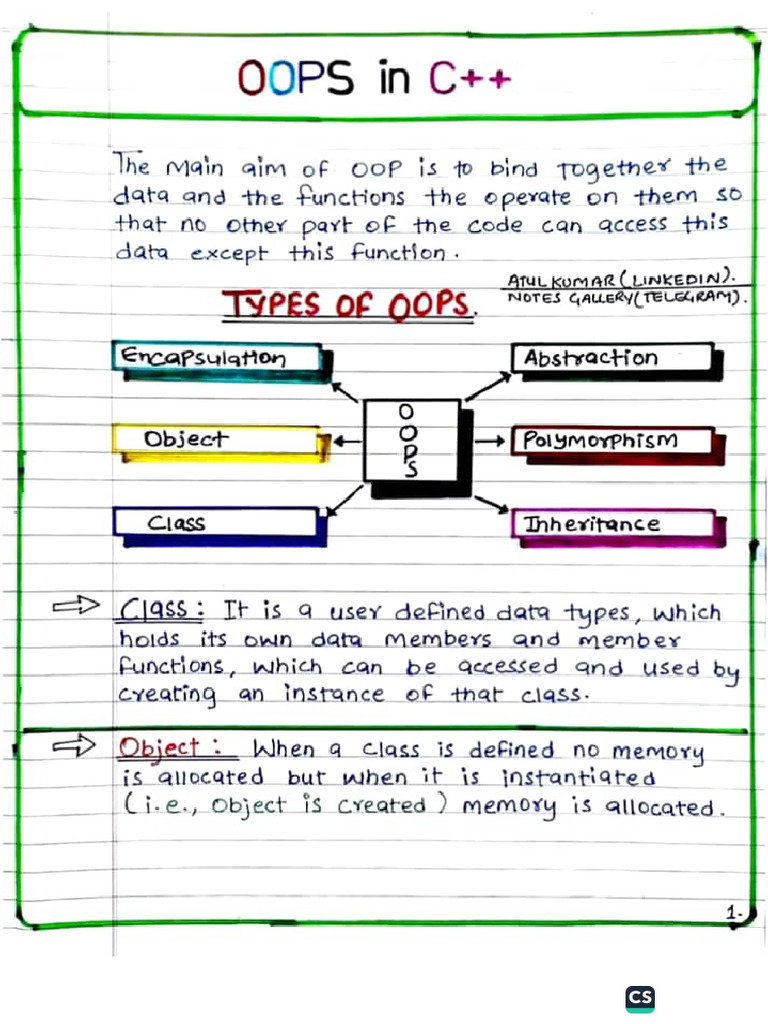 OOPS in C++
The main aim of OOP is to bind together the
data and the functions the operate on them so
that no other part of the code can access this
data except this function.
ATUL KUMAR (LINKEDIN).
NOTES GALLERY (TELEGRAM).
TYPES OF OOPS.
Encapsulation
Abstraction
Object
O
O
P
S
Polymorphism
Class
Inheritance
⇒ Class : It is a user defined data types, which
holds its own data members and member
functions, which can be accessed and used by
creating an instance of that class.
⇒ Object : When a class is defined no memory
is allocated but when it is instantiated
(i.e., object is created) memory is allocated.
1.
CS